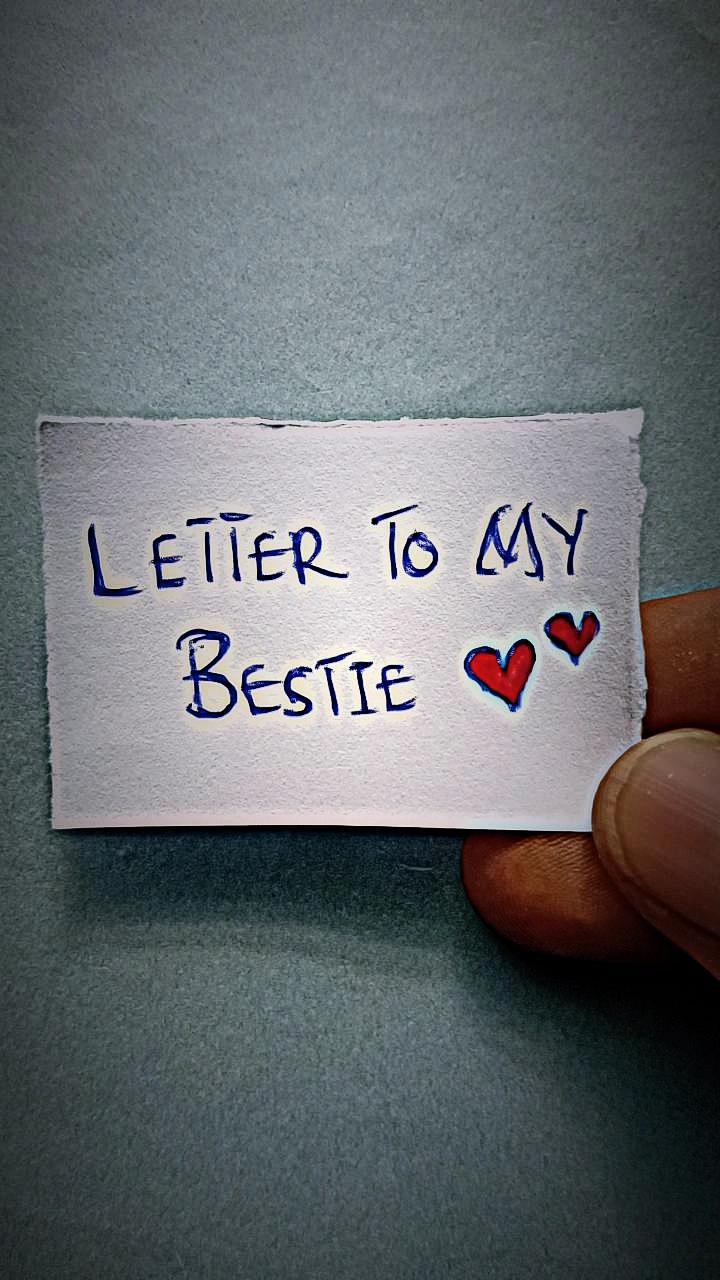 LETTER TO MY
BESTIE